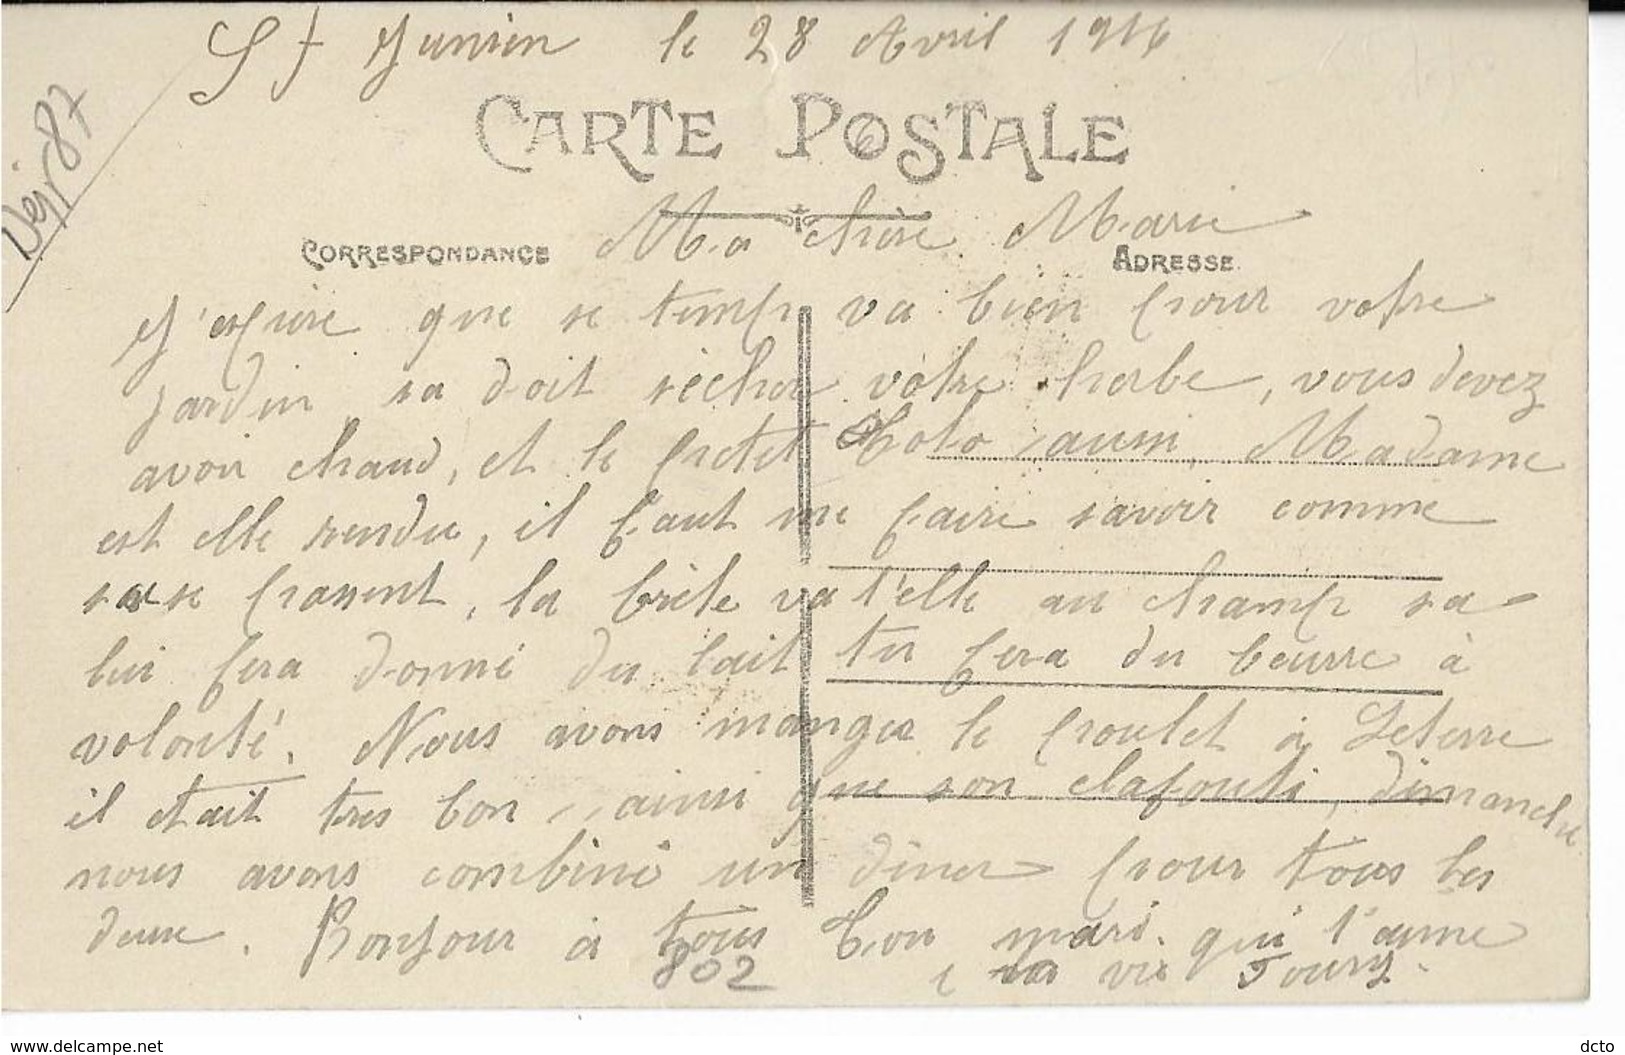 St Junien le 28 Avril 1916
Dép 87
CARTE POSTALE
CORRESPONDANCE
ADRESSE
Ma chère Marie
J'espere que se temp va bien pour votre
jardin sa doit sécher votre herbe, vous devez
avoir chaud, et le petit Toto aussi, Madame
est elle rendu, il faut me faire savoir comme
sa se passent, la brele va t'elle au champ sa
lui fera donné du lait tu fera du beurre à
volonté. Nous avons manger le poulet à Leterre
il etait tres bon, ainsi que son clafouti, dimanche
nous avons combiné un diner pour tous les
deux. Bonjour à tous Ton mari qui t'aime
802